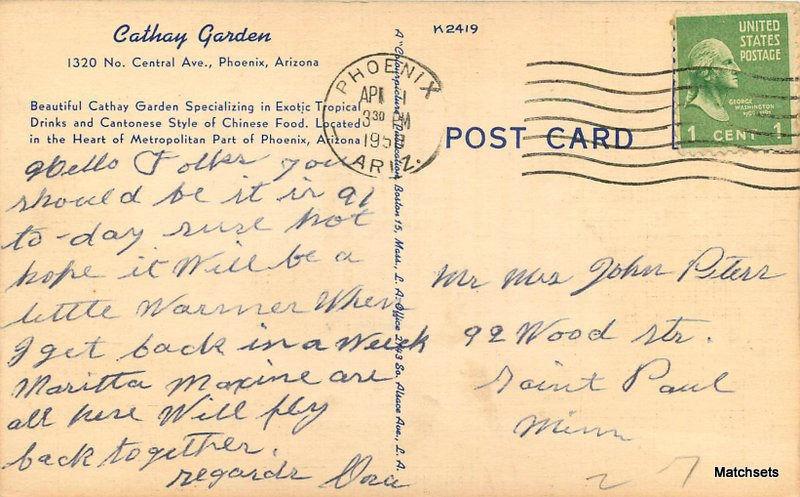 Cathay Garden
1320 No. Central Ave., Phoenix, Arizona
Beautiful Cathay Garden Specializing in Exotic Tropical
Drinks and Cantonese Style of Chinese Food. Located
in the Heart of Metropolitan Part of Phoenix, Arizona
Hello Folks you
should be it is 91
to-day sure hot
hope it Will be a
little Warmer When
I get back in a Week
Maritta Maxine are
all here Will fly
back together.
regards
A "Colourpicture" Publication, Boston 15, Mass., L. A. Office 2143 So. Alsace Ave., L. A.
K2419
PHOENIX
APR 1
330 PM
195
ARIZ.
POST CARD
UNITED
STATES
POSTAGE
GEORGE
WASHINGTON
1 CENT 1
Mr Mrs John Peters
92 Wood str.
Saint Paul
Minn
27
Matchsets